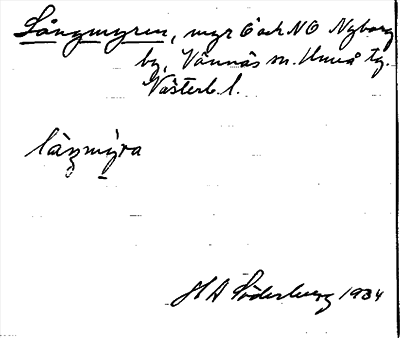 Långmyren, myr Ö och NO Nyborg
by, Vännäs sn. Umeå tg.
Västerb. l.
långmýra
H A Söderberg 1934